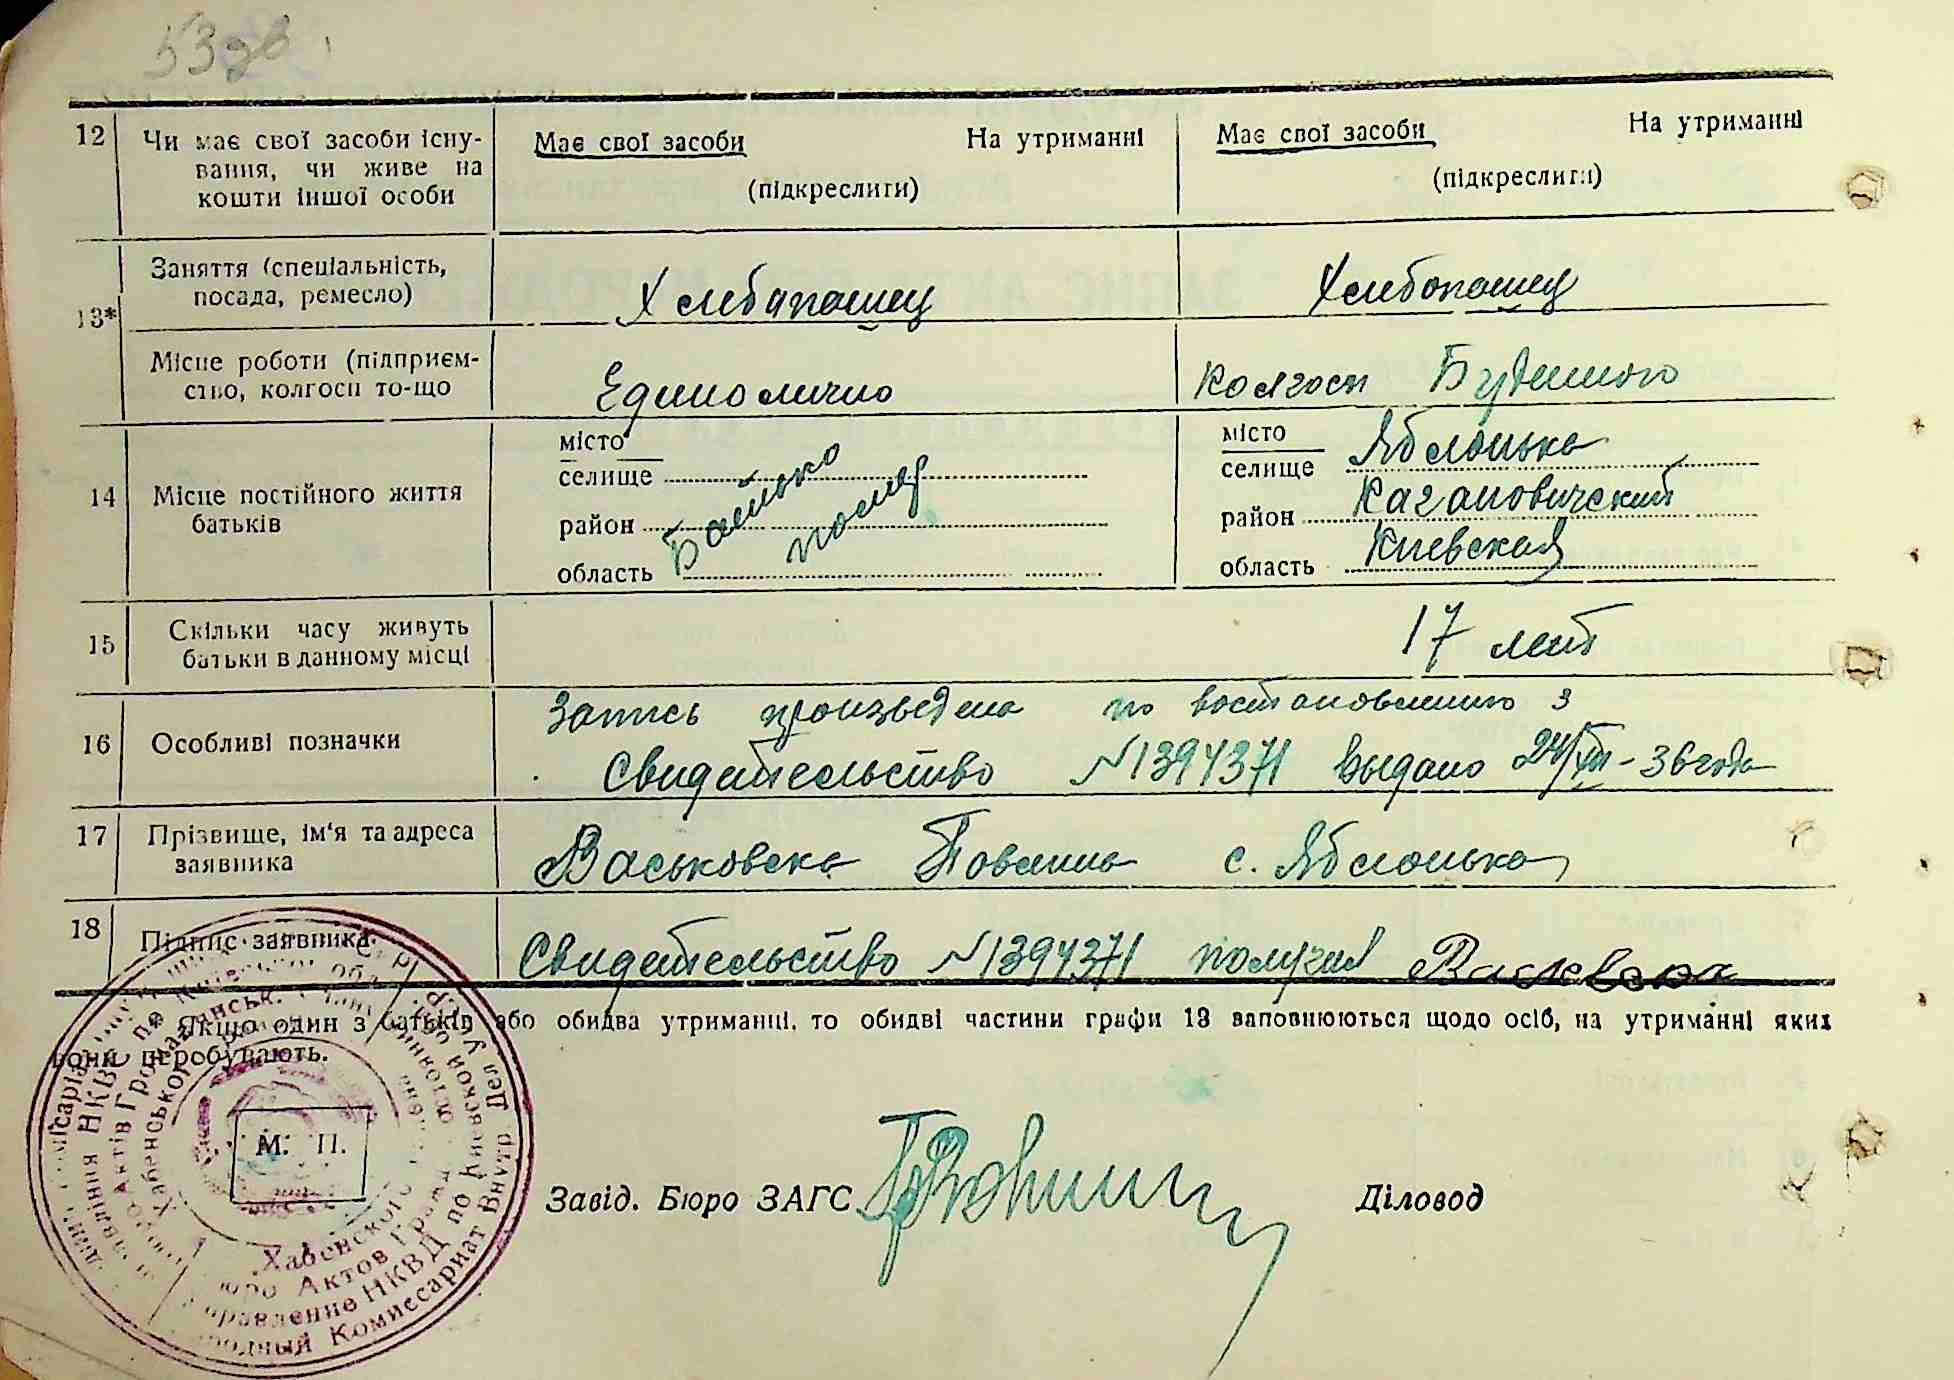 53зв
12 Чи має свої засоби існу-
вання, чи живе на
кошти іншої особи
Має свої засоби На утриманні
(підкреслити)
Має свої засоби На утриманні
(підкреслити)
13*
Заняття (спеціальність,
посада, ремесло)
Хлебапашец
Хлебопашец
Місце роботи (підприєм-
ство, колгосп то-що
Единолично
Колгосп Буденного
14 Місце постійного життя
батьків
місто
селище
район
область
Батько
помер
місто
селище Яблонька
район Кагановичский
область Киевская
15 Скільки часу живуть
батьки в данному місці
17 лет
16 Особливі позначки
Запись произведена по востановлению з
Свидетельство №1394371 выдано 24/XII-36 года
17 Прізвище, ім'я та адреса
заявника
Васьковска Повлина с. Яблонька
18 Підпис заявника
Свидетельство №1394371 получил Васковска
Якщо один з батьків або обидва утриманці, то обидві частини графи 13 заповнюються щодо осіб, на утриманні яких
вони перебувають.
М. П.
Завід. Бюро ЗАГС
Діловод
Хабенского
Бюро Актов Гражд
Управление НКВД по Киевской обл.
Народный Комиссариат Внутр. Дел У.С.С.Р.